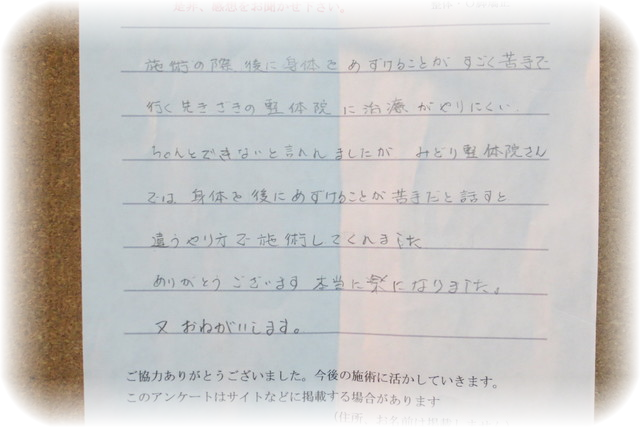 是非、感想をお聞かせ下さい。
施術の際 後に身体をあずけることが すごく苦手で
行く先きざきの整体院 に治療がやりにくい、
ちゃんとできないと言われましたが みどり整体院さん
では 身体を後にあずけることが苦手だと話すと
違うやり方で施術してくれました
ありがとうございます 本当に楽になりました。
又 おねがいします。
ご協力ありがとうございました。今後の施術に活かしていきます。
このアンケートはサイトなどに掲載する場合があります